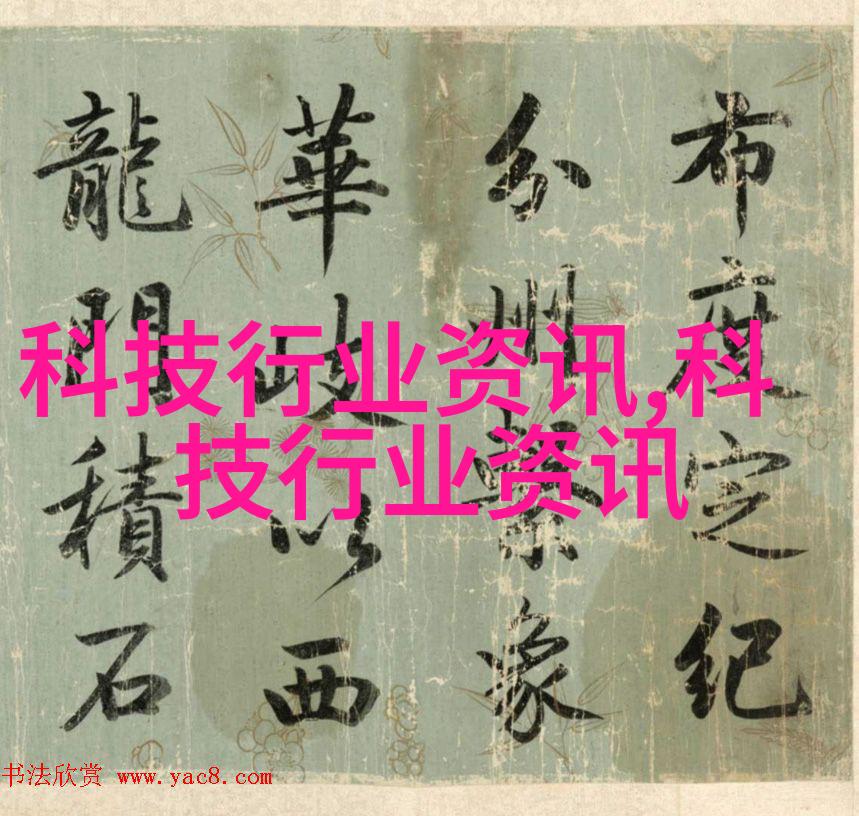 布度定紀
分州象
華岐以西
龍門積石
科技行业资讯,科
技行业资讯
书法欣赏 www.yac8.com